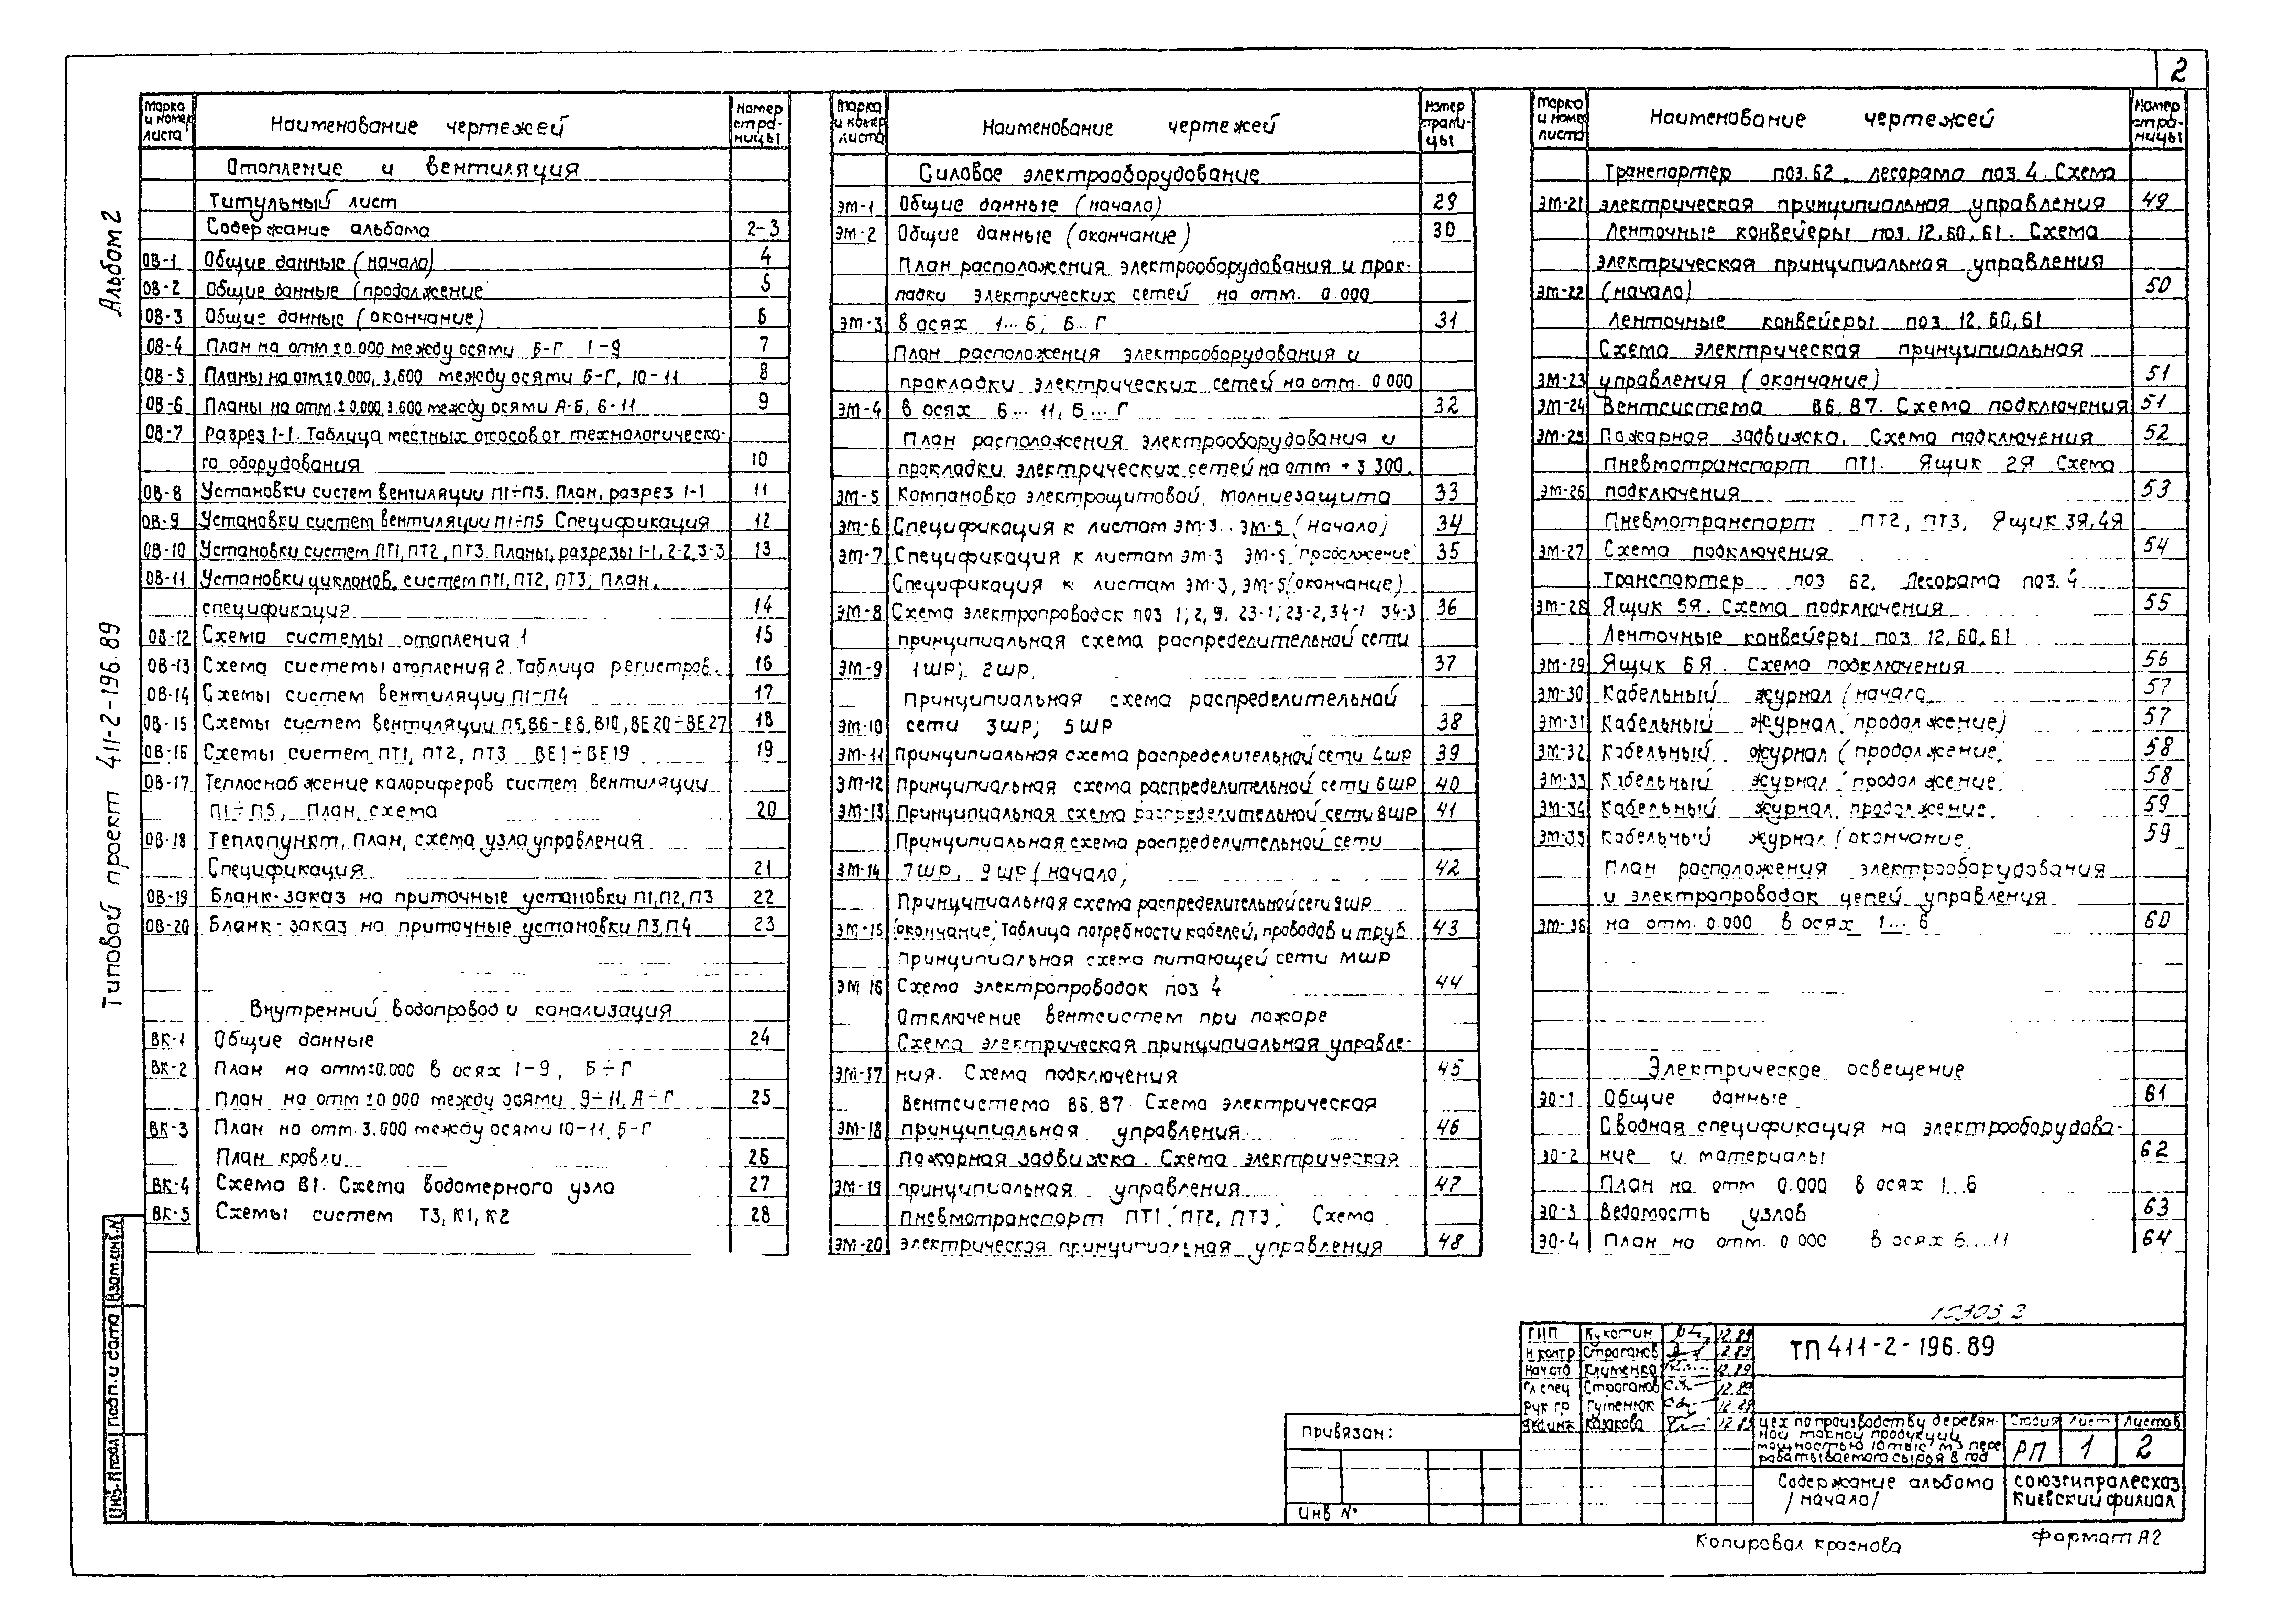 2
Альбом 2
Типовой проект 411-2-196.89
Марка и номер листа
Наименование чертежей
Номер стра-ницы
Отопление и вентиляция
Титульный лист
Содержание альбома 2-3
ОВ-1 Общие данные (начало) 4
ОВ-2 Общие данные (продолжение 5
ОВ-3 Общие данные (окончание) 6
ОВ-4 План на отм ±0.000 между осями Б-Г 1-9 7
ОВ-5 Планы на отм ±0.000, 3.600 между осями Б-Г, 10-11 8
ОВ-6 Планы на отм. ±0,000, 3.600 между осями А-Б, 6-11 9
ОВ-7 Разрез 1-1. Таблица местных отсосов от технологическо-
го оборудования 10
ОВ-8 Установки систем вентиляции П1÷П5. План, разрез 1-1 11
ОВ-9 Установки систем вентиляции П1÷П5 Спецификация 12
ОВ-10 Установки систем ПТ1, ПТ2, ПТ3. Планы, разрезы 1-1, 2-2, 3-3 13
ОВ-11 Установки циклонов, систем ПТ1, ПТ2, ПТ3; План,
спецификация 14
ОВ-12 Схема системы отопления 1 15
ОВ-13 Схема системы отопления 2. Таблица регистров. 16
ОВ-14 Схемы систем вентиляции П1-П4 17
ОВ-15 Схемы систем вентиляции П5, В6-В8, В10, ВЕ20÷ВЕ27 18
ОВ-16 Схемы систем ПТ1, ПТ2, ПТ3 ВЕ1÷ВЕ19 19
ОВ-17 Теплоснабжение калориферов систем вентиляции
П1÷П5, План, схема 20
ОВ-18 Теплопункт, План, схема узла управления
Спецификация 21
ОВ-19 Бланк-заказ на приточные установки П1, П2, П3 22
ОВ-20 Бланк-заказ на приточные установки П3, П4 23
Внутренний водопровод и канализация
ВК-1 Общие данные 24
ВК-2 План на отм ±0.000 в осях 1-9, Б÷Г
План на отм ±0 000 между осями 9-11, А-Г 25
ВК-3 План на отм. 3.600 между осями 10-11, Б-Г
План кровли 26
ВК-4 Схема В1. Схема водомерного узла 27
ВК-5 Схемы систем Т3, К1, К2 28
Марка и номер листа
Наименование чертежей
Номер страни-цы
Силовое электрооборудование
ЭМ-1 Общие данные (начало) 29
ЭМ-2 Общие данные (окончание) 30
План расположения электрооборудования и прок-
ладки электрических сетей на отм. 0.000
ЭМ-3 в осях 1...6; Б...Г 31
План расположения электрооборудования и
прокладки электрических сетей на отм. 0 000
ЭМ-4 в осях 6...11, Б...Г 32
План расположения электрооборудования и
прокладки электрических сетей на отм + 3 300.
ЭМ-5 Компановка электрощитовой, молниезащита 33
ЭМ-6 Спецификация к листам ЭМ-3.. ЭМ-5 (начало) 34
ЭМ-7 Спецификация к листам ЭМ-3 ЭМ-5 (продолжение) 35
Спецификация к листам ЭМ-3, ЭМ-5 (окончание)
ЭМ-8 Схема электропроводок поз 1; 2, 9, 23-1; 23-2, 34-1 34-3 36
принципиальная схема распределительной сети
ЭМ-9 1шр; 2шр. 37
Принципиальная схема распределительной
ЭМ-10 сети 3шр; 5шр 38
ЭМ-11 Принципиальная схема распределительной сети 4шр 39
ЭМ-12 Принципиальная схема распределительной сети 6шр 40
ЭМ-13 Принципиальная схема распределительной сети 8шр 41
Принципиальная схема распределительной сети
ЭМ-14 7шр, 9шр (начало) 42
Принципиальная схема распределительной сети 9шр
ЭМ-15 (окончание). Таблица потребности кабелей, проводов и труб 43
Принципиальная схема питающей сети МШР
ЭМ 16 Схема электропроводок поз 4 44
Отключение вентсистем при пожаре
Схема электрическая принципиальная управле-
ЭМ-17 ния. Схема подключения 45
Вентсистема В6, В7. Схема электрическая
ЭМ-18 принципиальная управления. 46
Пожарная задвижка. Схема электрическая
ЭМ-19 принципиальная управления 47
Пневмотранспорт ПТ1, ПТ2, ПТ3, Схема
ЭМ-20 электрическая принципиальная управления 48
Марка и номе листа
Наименование чертежей
Номер стра-ницы
Транспортер поз. 62, лесорама поз 4. Схема
ЭМ-21 электрическая принципиальная управления 49
Ленточные конвейеры поз. 12, 60, 61. Схема
электрическая принципиальная управления
ЭМ-22 (начало) 50
Ленточные конвейеры поз. 12, 60, 61
Схема электрическая принципиальная
ЭМ-23 управления (окончание) 51
ЭМ-24 Вентсистема В6, В7. Схема подключения 51
ЭМ-25 Пожарная задвижка. Схема подключения 52
Пневмотранспорт ПТ1. Ящик 2Я Схема
ЭМ-26 подключения 53
Пневмотранспорт ПТ2, ПТ3, Ящик 3Я, 4Я
ЭМ-27 Схема подключения 54
Транспортер поз 62. Лесорама поз. 4
ЭМ-28 Ящик 5Я. Схема подключения 55
Ленточные конвейеры поз 12, 60, 61
ЭМ-29 Ящик 6Я. Схема подключения 56
ЭМ-30 Кабельный журнал (начало 57
ЭМ-31 Кабельный журнал (продолжение) 57
ЭМ-32 Кабельный журнал (продолжение 58
ЭМ-33 Кабельный журнал (продолжение) 58
ЭМ-34 Кабельный журнал продолжение 59
ЭМ-35 Кабельный журнал (окончание 59
План расположения электрооборудования
и электропроводок цепей управления
ЭМ-36 на отм. 0.000 в осях 1...6 60
Электрическое освещение
ЭО-1 Общие данные 61
Сводная спецификация на электрооборудова-
ЭО-2 ние и материалы 62
План на отм 0.000 в осях 1...6
ЭО-3 Ведомость узлов 63
ЭО-4 План на отм. 0 000 в осях 6...11 64
Взам.инв.N
Подп. и дата
Инв. N подл
ГИП Кукотин 12.89
Н контр Строганов 12.89
Нач отд Клименко 12.89
Гл спец Строганов 12.89
Рук гр Гутенюк 12 89
Вед инж Казакова 12.89
ТП 411-2-196.89
цех по производству деревян-
ной тарной продукции
мощностью 10 тыс м3 пере
рабатываемого сырья в год
Стадия Лист Листов
РП 1 2
Содержание альбома
/начало/
союзгипролесхоз
Киевский филиал
Привязан:
Инв №
Копировал Краснова
Формат А2